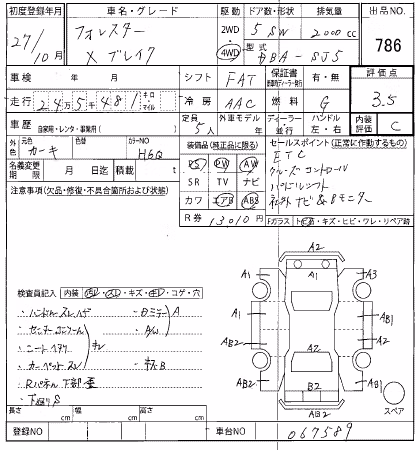 初度登録年月 車名・グレード 駆動 ドア数・形状 排気量 出品NO.
27/10月 フォレスター 2WD 4WD 5 SW 2000cc 786
X ブレイク 型式 DBA-SJ5
車検 年 月 シフト FAT 保証書 有・無 評価点
走行 2 4万5千481 キロ マイル 冷房 AAC 燃料 G 3.5
車歴 自家用・レンタ・事業用( ) 定員 5人 外車モデル 年 ディーラー 並行 ハンドル 左・右 内装評価 C
外色 元色 カーキ 色替 カラーNO H6Q 装備品(純正品に限る) セールスポイント(正常に作動するもの)
名義変更期限 月 日迄 積載 t PS PW AW ETC
注意事項(欠品・修復・不具合箇所および状態) SR TV ナビ クルーズコントロール
カワ エアB ABS パドルシフト
R券 13010円 社外ナビ&Bモニター
Fガラス
A2
A1 A1 A3
検査員記入 内装 キズ・コゲ・穴
・ハンドルスレ ・Bミラー A A1 AB1
・センターコンソール ・A/W AB2 A2 A1
・シートヘタリ キレ
・カーペットスレ キズB AB2 AB1
・Rパネル下部 B2
・下廻りS AB2
スペア
長さ cm 幅 cm 高さ cm
登録NO 車台NO 067589